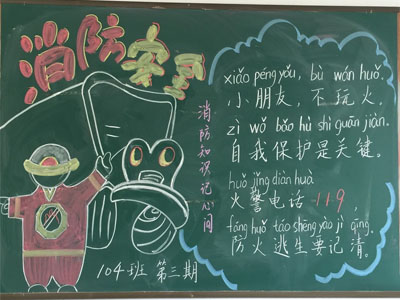 消防安全
消防知识记心间
xiǎo péng yǒu, bù wán huǒ.
小朋友，不玩火。
zì wǒ bǎo hù shì guān jiàn.
自我保护是关键。
huǒ jǐng diàn huà
火警电话119，
fáng huǒ táo shēng yào jì qīng.
防火逃生要记清。
104班 第三期